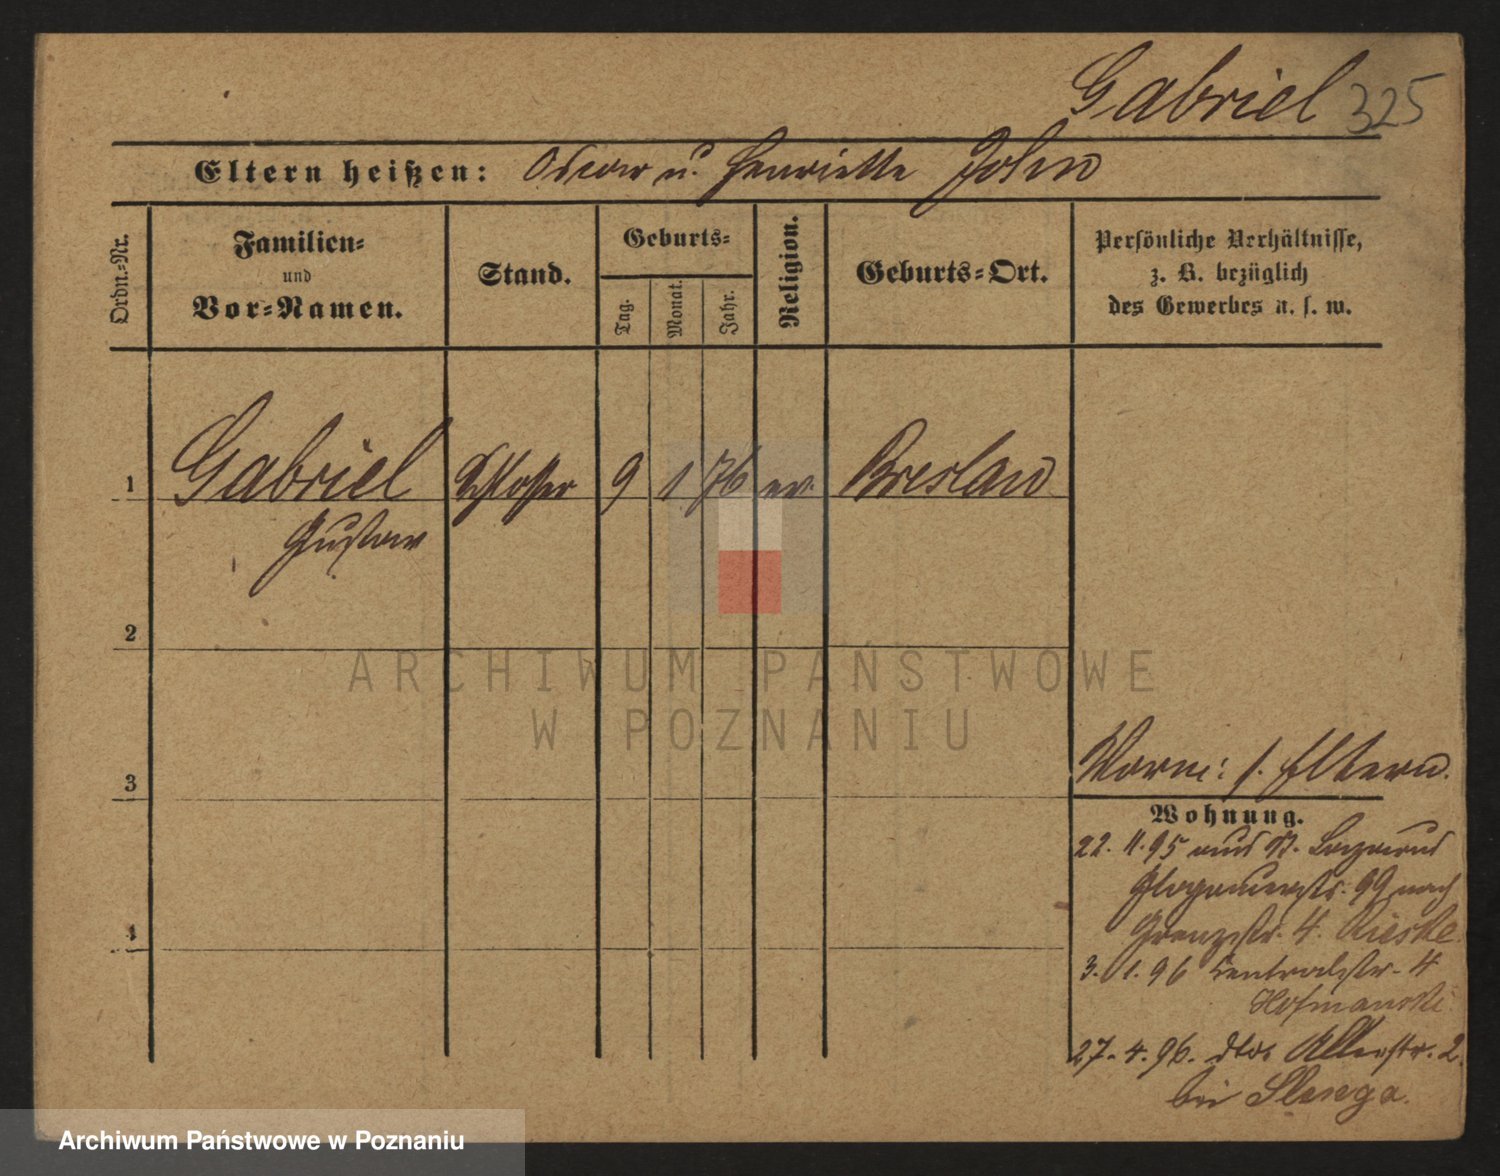 Gabriel 325
Eltern heißen: Oscar u. Henriette John
Ordn.=Nr.
Familien=
und
Vor=Namen.
Stand.
Geburts=
Tag.
Monat.
Jahr.
Religion.
Geburts=Ort.
Persönliche Verhältnisse,
z. B. bezüglich
des Gewerbes u. s. w.
1 Gabriel Schlosser 9 1 76 ev. Breslau
Gustav
2
3
4
Vorm: s. Eltern.
Wohnung.
22. 11. 95 aus St.
Glogauerstr. 99 nach
Grenzstr. 4. Rieske
3. 1. 96 Centralstr. 4
Hofmanski
27. 4. 96. 2.
bei
ARCHIWUM PAŃSTWOWE
W POZNANIU
Archiwum Państwowe w Poznaniu